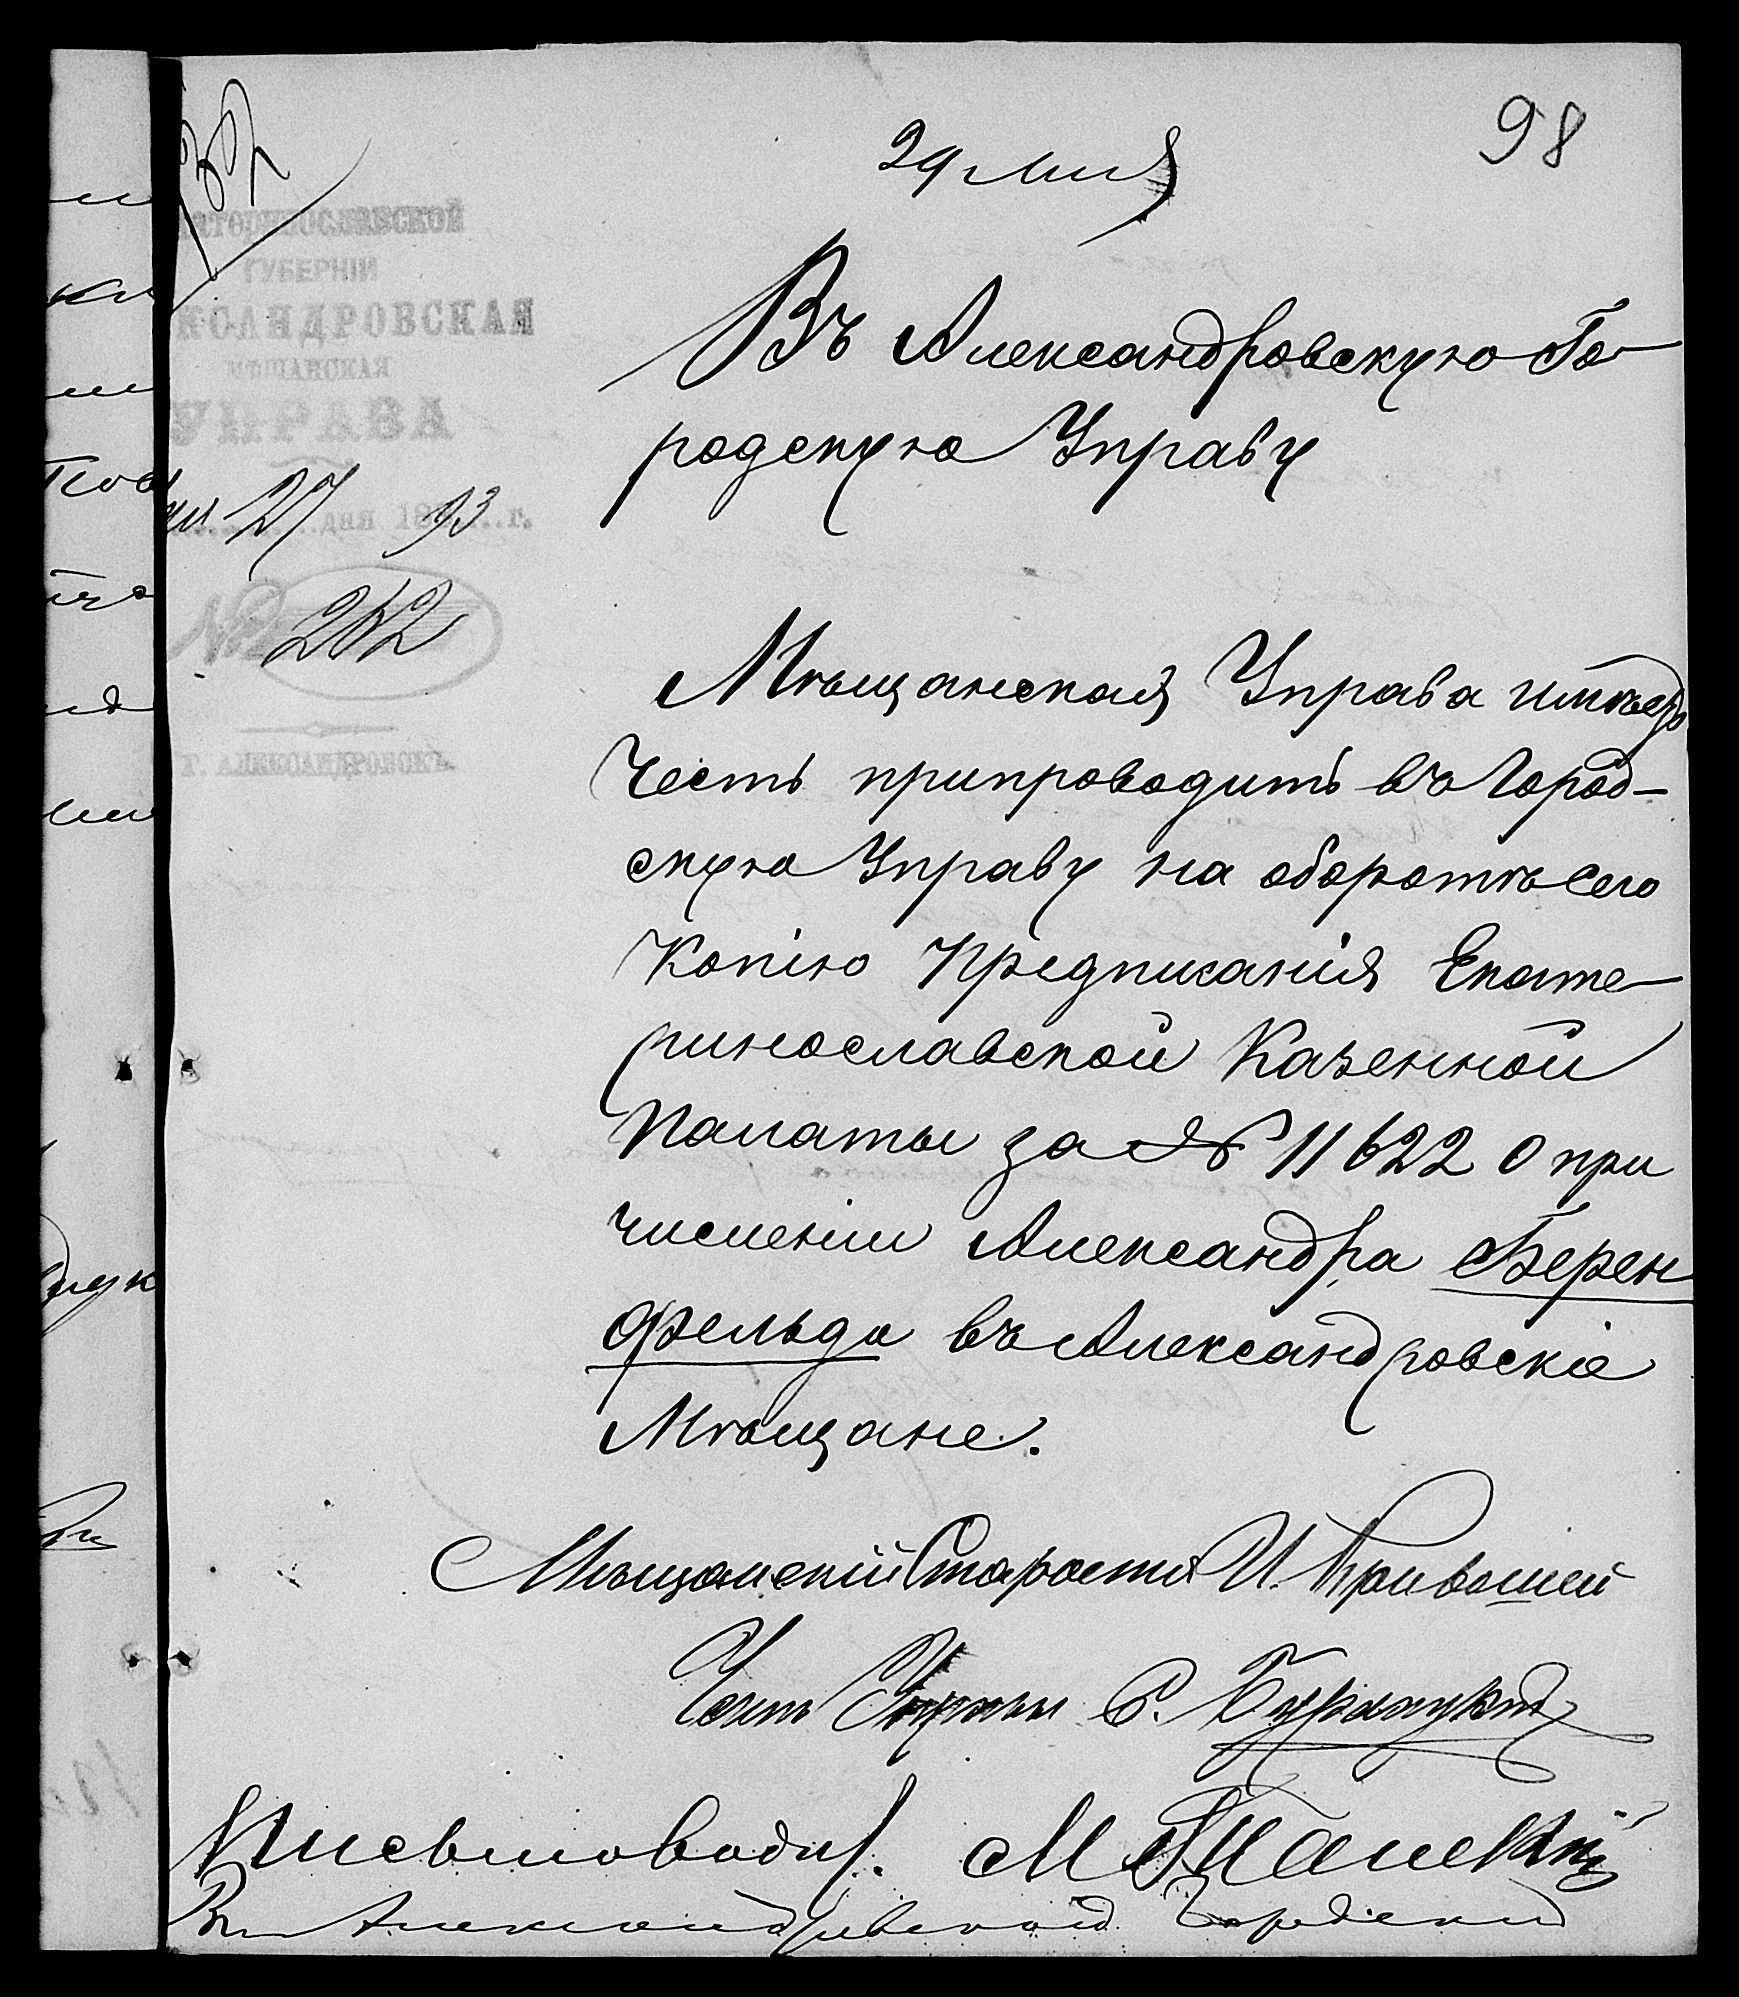 98
29 Мая
ГУБЕРНІИ
УПРАВА
27 дня 1893 г.
№ 262
Г. АЛЕКСАНДРОВСКЪ.
Въ Александровскую Го
родскую Управу
Мѣщанская Управа имѣетъ
честь припроводить въ Город-
скую Управу на оборотѣ сего
копію предписанія Екате-
ринославской Казенной
Палаты за № 11622 о при
численіи Александра Берен
фельда въ Александровскіе
Мѣщане.
Мѣщанскій Староста И.
Членъ Управы
Письмоводит.
Въ Александровской Городской